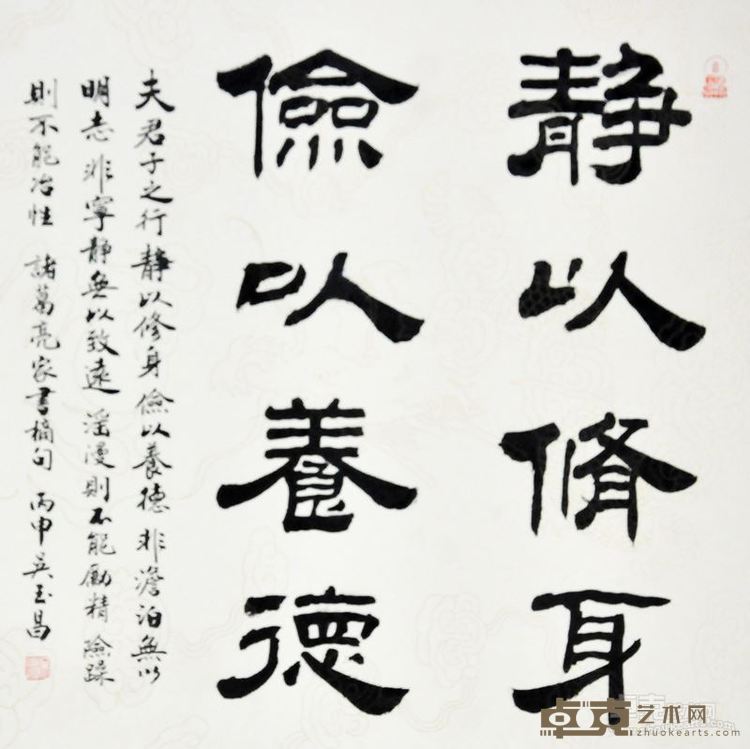 静以脩身
儉以養德
夫君子之行静以修身儉以養德非澹泊無以
明志非寧静無以致遠淫漫則不能勵精險躁
則不能冶性 諸葛亮家書摘句 丙申吴玉昌
卓克艺术网
zhuokearts.com